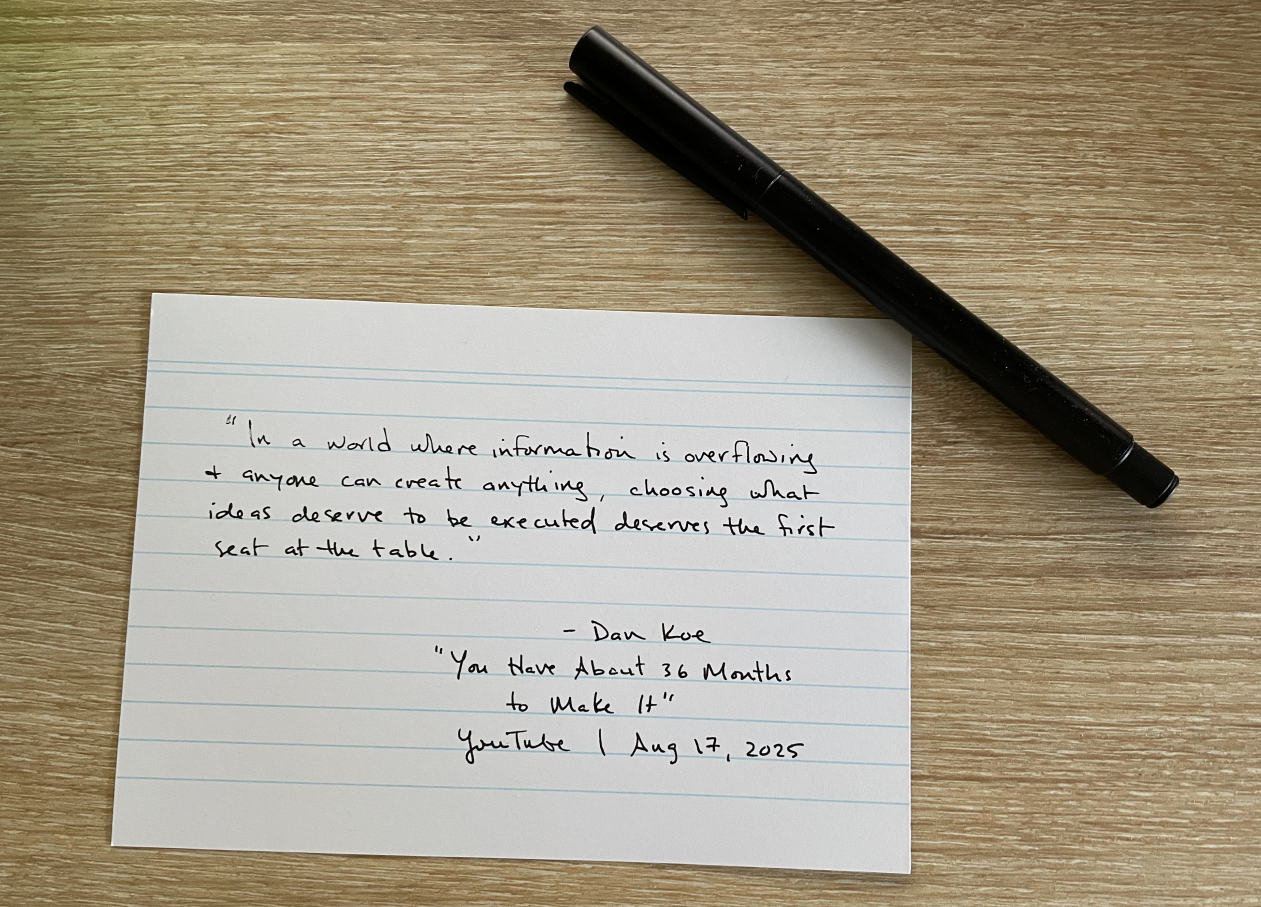 "In a world where information is overflowing
+ anyone can create anything, choosing what
ideas deserve to be executed deserves the first
seat at the table."
- Dan Koe
"You Have About 36 Months
to Make It"
YouTube | Aug 17, 2025